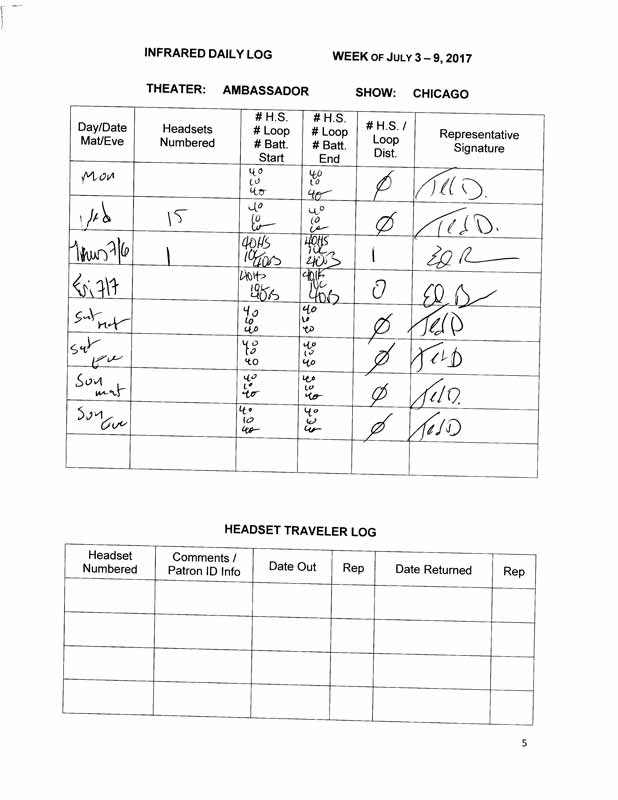 INFRARED DAILY LOG WEEK OF JULY 3 – 9, 2017
THEATER: AMBASSADOR SHOW: CHICAGO
Day/Date Mat/Eve Headsets Numbered # H.S. # Loop # Batt. Start # H.S. # Loop # Batt. End # H.S. / Loop Dist. Representative Signature
Mon 40 10 40 40 10 40 Ø Ted D.
Wed 15 40 10 40 40 10 Ø Ted D.
Thurs 7/6 1 40HS 40B 40HS 40B 1
Fri 7/7 40HS 40B 40B 0
Sat mat 40 10 40 40 10 40 Ø Ted D
Sat Eve 40 10 40 40 10 40 Ø Ted D
Sun mat 40 10 40 40 10 40 Ø Ted D.
Sun Eve 40 10 40 40 10 40 Ø Ted D
HEADSET TRAVELER LOG
Headset Numbered Comments / Patron ID Info Date Out Rep Date Returned Rep
5